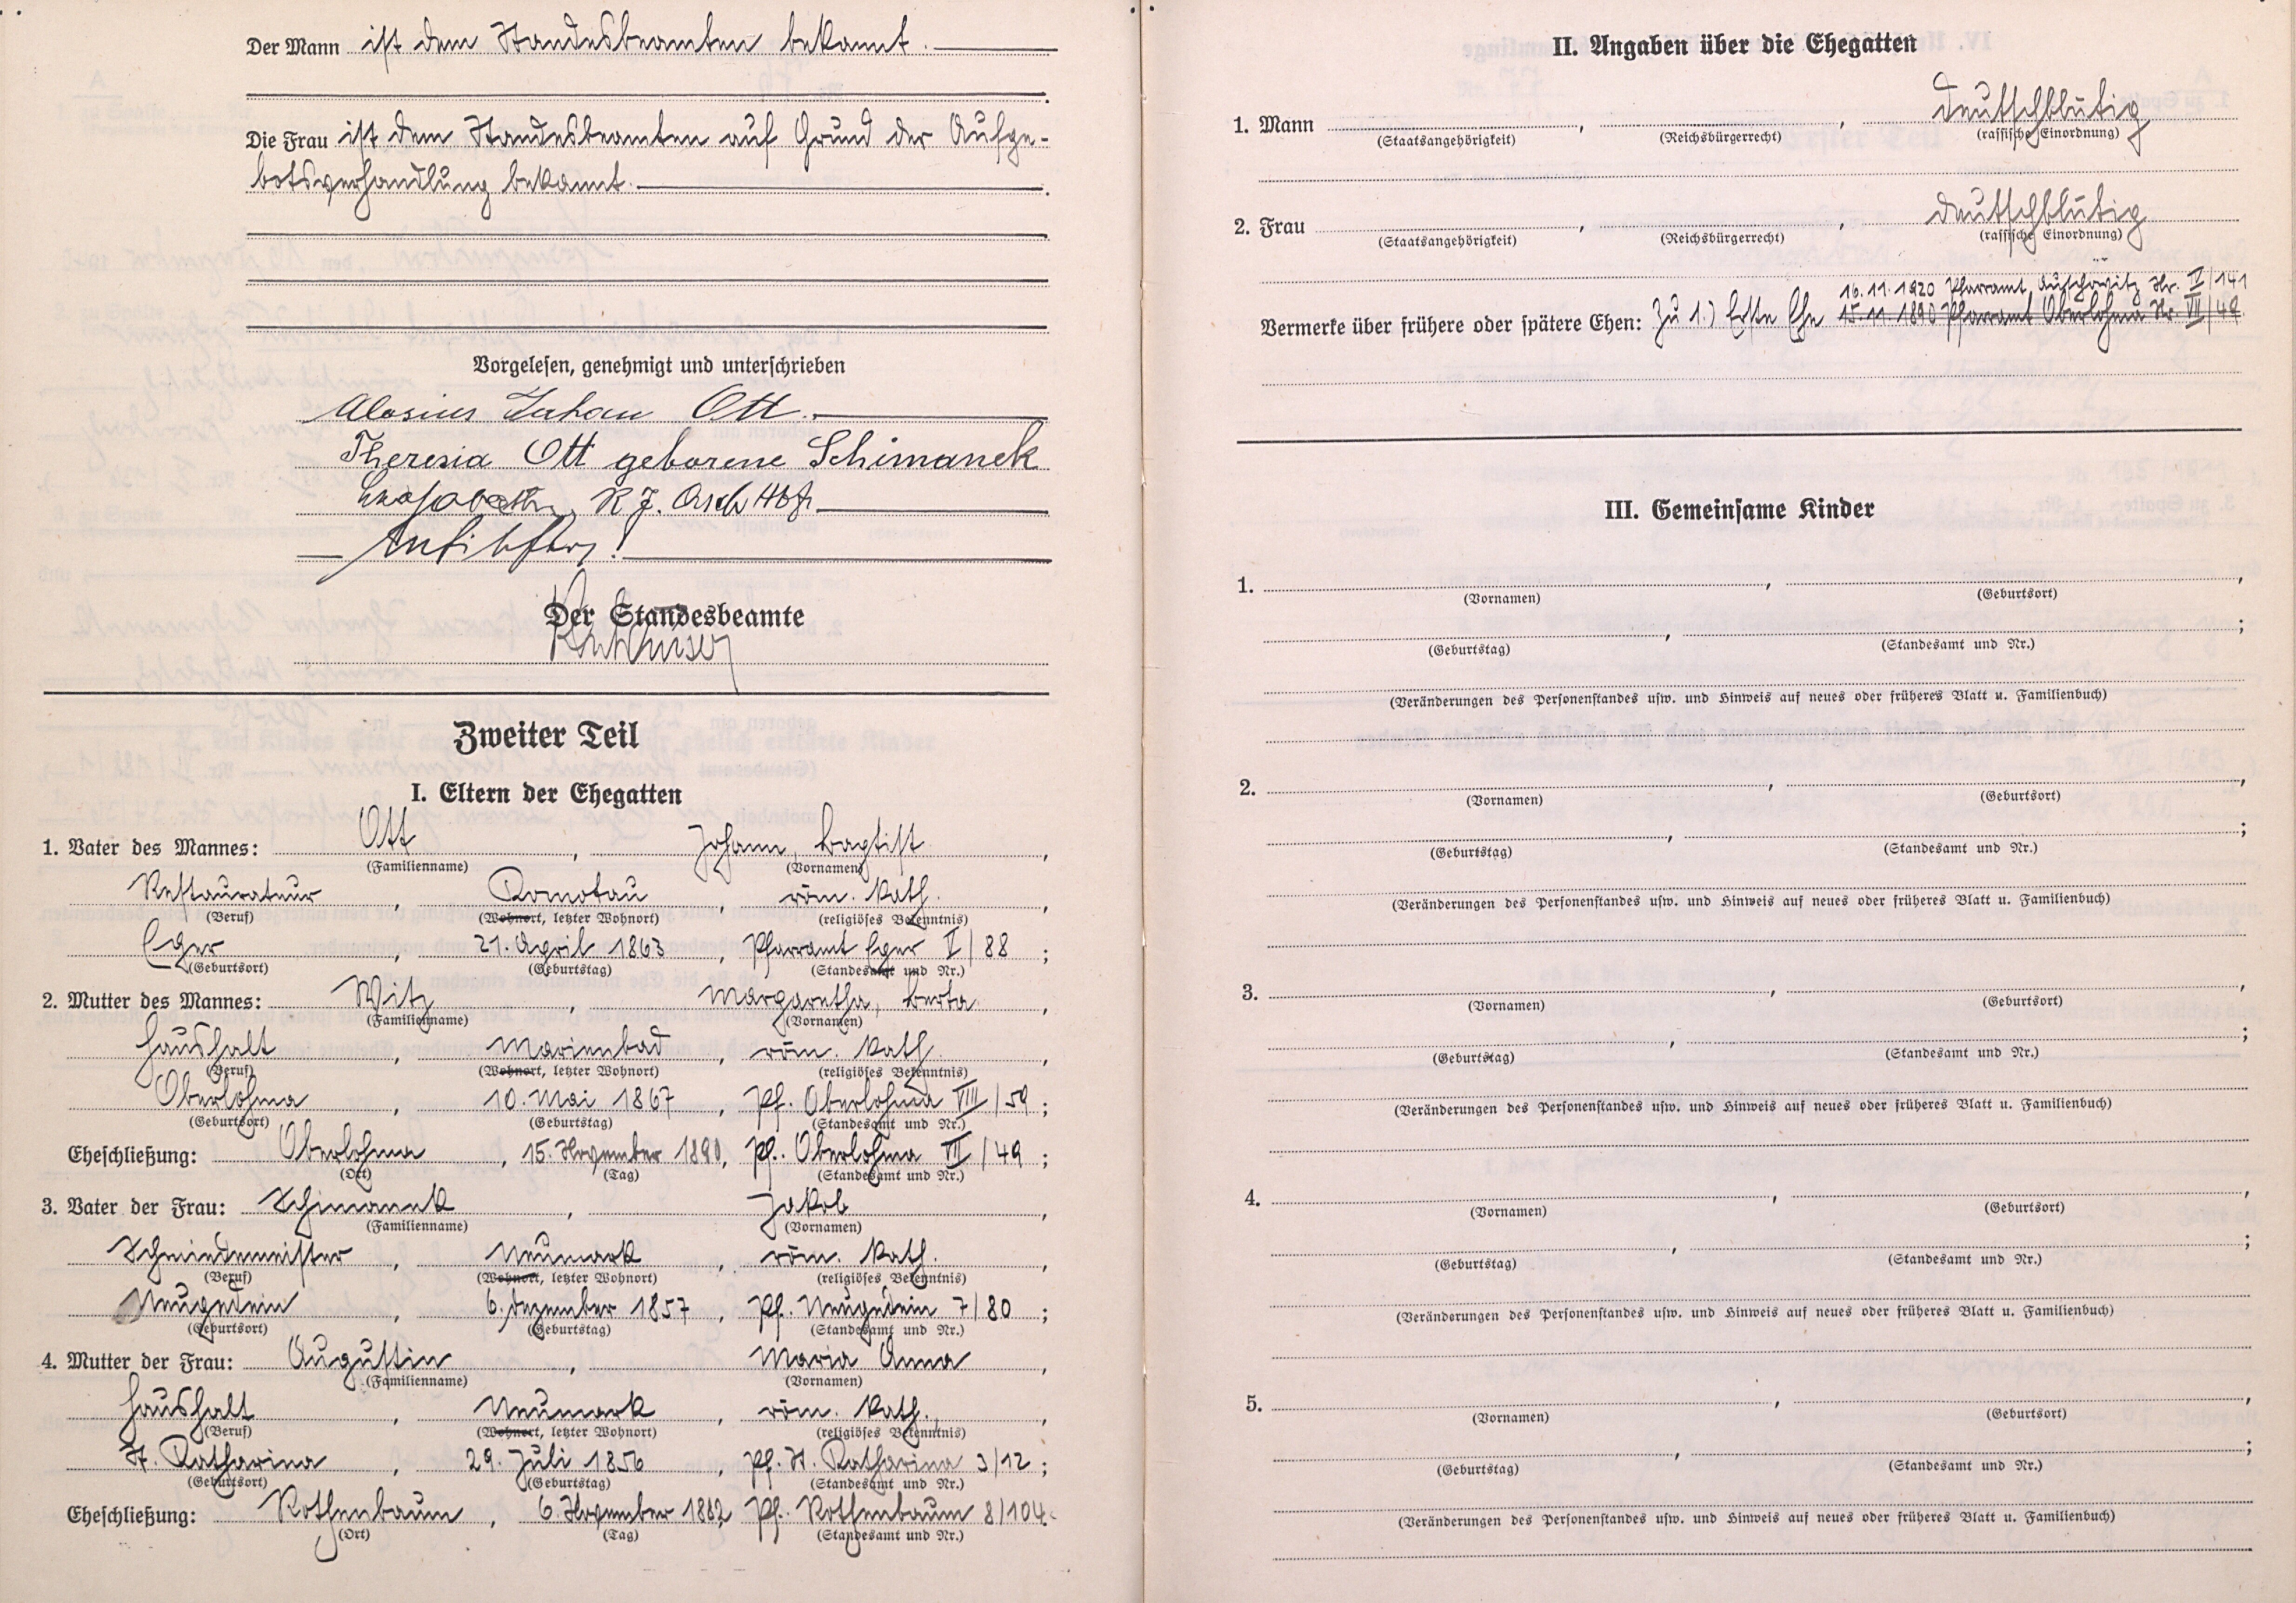 Der Mann ist dem Standesbeamten bekannt.
Die Frau ist dem Standesbeamten auf Grund der Aufge-
botsverhandlung bekannt.
Vorgelesen, genehmigt und unterschrieben
Aloisius Johan Ott.
Theresia Ott geborene Schimanek
R J. Asch Hbf.
Der Standesbeamte
Zweiter Teil
I. Eltern der Ehegatten
1. Vater des Mannes: Ott, Johann, Baptist,
(Familienname) (Vornamen)
Restaurateur, Komotau, röm. kath.,
(Beruf) (Wohnort, letzter Wohnort) (religiöses Bekenntnis)
Eger, 21. April 1863, Pfarramt Eger V/88;
(Geburtsort) (Geburtstag) (Standesamt und Nr.)
2. Mutter des Mannes: Witz, Margaretha, Berta,
(Familienname) (Vornamen)
Haushalt, Marienbad, röm. kath.,
(Beruf) (Wohnort, letzter Wohnort) (religiöses Bekenntnis)
Oberlohma, 10. Mai 1867, Pf. Oberlohma VIII/59;
(Geburtsort) (Geburtstag) (Standesamt und Nr.)
Eheschließung: Oberlohma, 15. November 1890, Pf. Oberlohma VII/49;
(Ort) (Tag) (Standesamt und Nr.)
3. Vater der Frau: Schimanek, Jakob,
(Familienname) (Vornamen)
Schmiedemeister, Neumark, röm. kath.,
(Beruf) (Wohnort, letzter Wohnort) (religiöses Bekenntnis)
Neugedein, 6. Dezember 1857, Pf. Neugedein 7/80;
(Geburtsort) (Geburtstag) (Standesamt und Nr.)
4. Mutter der Frau: Augustin, Maria Anna,
(Familienname) (Vornamen)
Haushalt, Neumark, röm. kath.,
(Beruf) (Wohnort, letzter Wohnort) (religiöses Bekenntnis)
St. Katharina, 29. Juli 1856, Pf. St. Katharina 3/12;
(Geburtsort) (Geburtstag) (Standesamt und Nr.)
Eheschließung: Rothenbaum, 6. November 1882, Pf. Rothenbaum 8/104.
(Ort) (Tag) (Standesamt und Nr.)
II. Angaben über die Ehegatten
1. Mann , , deutschblütig
(Staatsangehörigkeit) (Reichsbürgerrecht) (rassische Einordnung)
2. Frau , , deutschblütig
(Staatsangehörigkeit) (Reichsbürgerrecht) (rassische Einordnung)
16.11.1920 Pfarramt Auschowitz Nr. V/141
Vermerke über frühere oder spätere Ehen: Zu 1.) Erste Ehe 15.11.1890 Pfarramt Oberlohma Nr. VII/49
III. Gemeinsame Kinder
1. , ,
(Vornamen) (Geburtsort)
, ;
(Geburtstag) (Standesamt und Nr.)
(Veränderungen des Personenstandes usw. und Hinweis auf neues oder früheres Blatt u. Familienbuch)
2. , ,
(Vornamen) (Geburtsort)
, ;
(Geburtstag) (Standesamt und Nr.)
(Veränderungen des Personenstandes usw. und Hinweis auf neues oder früheres Blatt u. Familienbuch)
3. , ,
(Vornamen) (Geburtsort)
, ;
(Geburtstag) (Standesamt und Nr.)
(Veränderungen des Personenstandes usw. und Hinweis auf neues oder früheres Blatt u. Familienbuch)
4. , ,
(Vornamen) (Geburtsort)
, ;
(Geburtstag) (Standesamt und Nr.)
(Veränderungen des Personenstandes usw. und Hinweis auf neues oder früheres Blatt u. Familienbuch)
5. , ,
(Vornamen) (Geburtsort)
, ;
(Geburtstag) (Standesamt und Nr.)
(Veränderungen des Personenstandes usw. und Hinweis auf neues oder früheres Blatt u. Familienbuch)